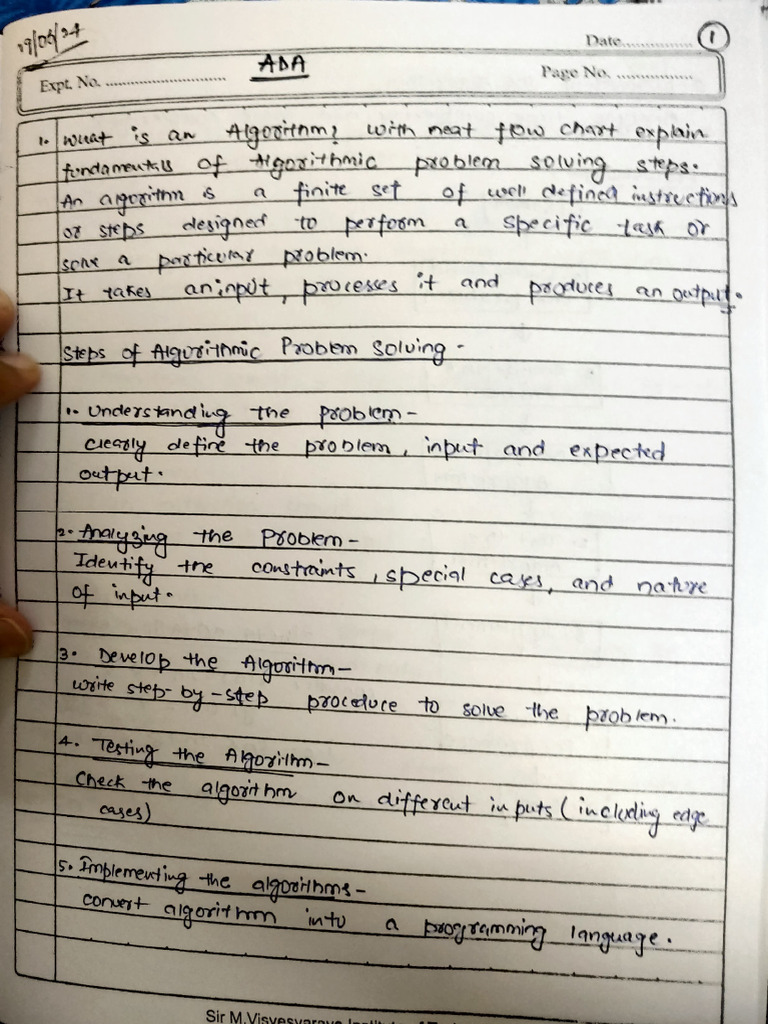 19/06/24
Date............... 1
Expt. No. ............................ ADA Page No. .................
1. What is an Algorithm? With neat flow chart explain
fundamentals of Algorithmic problem solving steps.
An algorithm is a finite set of well defined instructions
or steps designed to perform a specific task or
solve a particular problem.
It takes an input, processes it and produces an output.
Steps of Algorithmic Problem Solving -
1. Understanding the problem -
clearly define the problem, input and expected
output.
2. Analyzing the Problem -
Identify the constraints, special cases, and nature
of input.
3. Develop the Algorithm -
write step-by-step procedure to solve the problem.
4. Testing the Algorithm -
Check the algorithm on different inputs (including edge
cases)
5. Implementing the algorithms -
convert algorithm into a programming language.
Sir M.Visvesvaraya